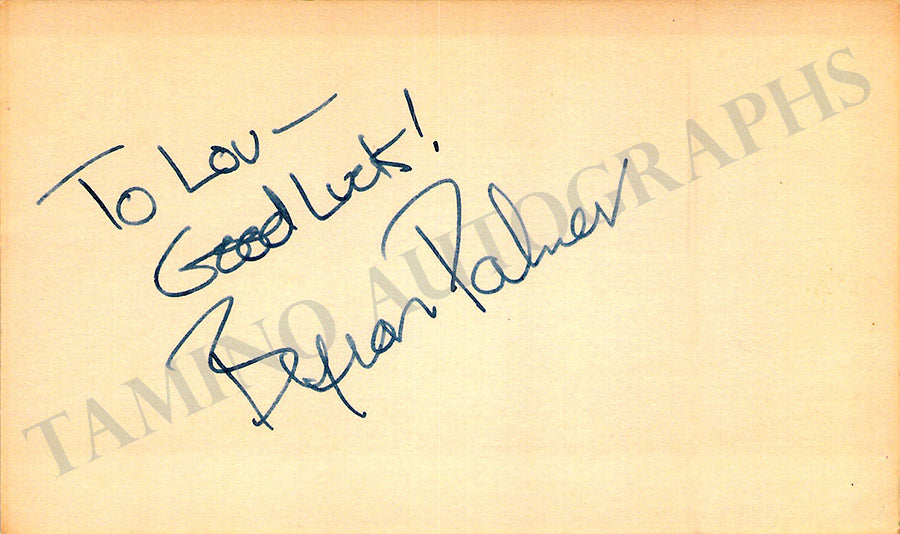 To Lou—
Good Luck!
Byron Palmer
TAMINO AUTOGRAPHS